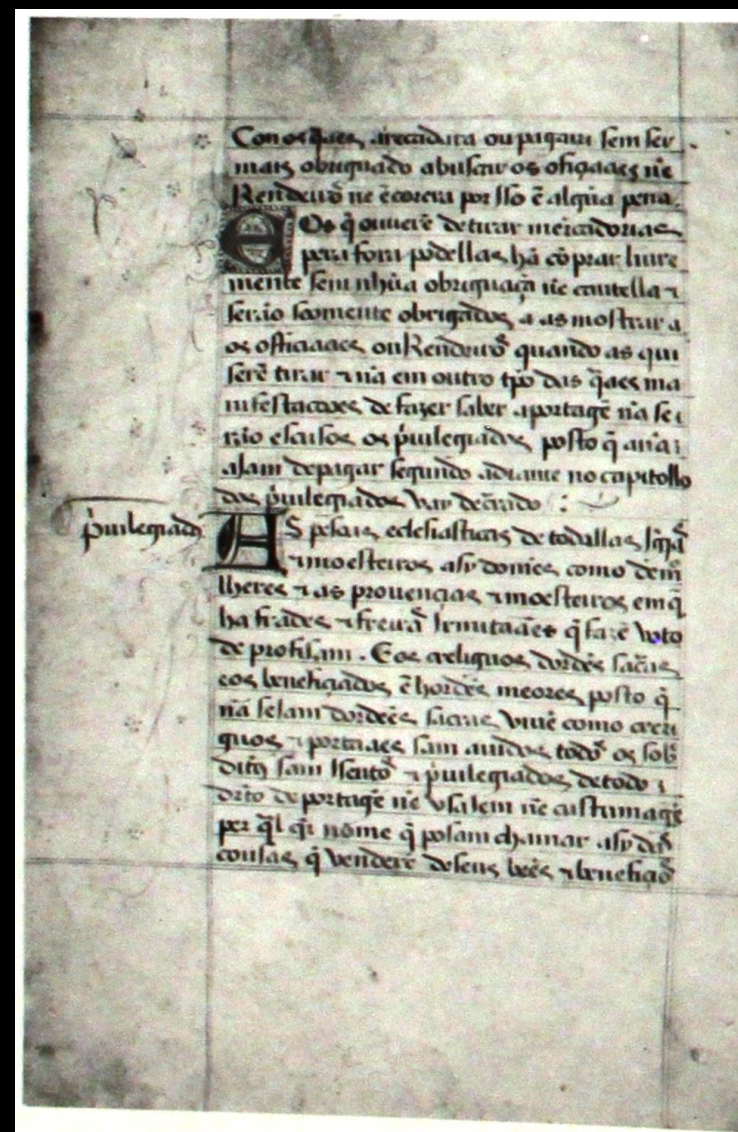 Con os q̃aes arecadara ou pagara sem ser
mais obriguado a buscar os ofiçiaaes nẽ
Rendeirõ nẽ ẽcorera por Isso ẽ algũa pena.
E Os q̃ ouuerẽ de tirar mercadorias
pera fora podellas hã cõprar liure
mente sem nhũa obriguaçã nẽ cautella ⁊
serão soomente obrigados a as mostrar a
os officiaaes ou Rendeirõs quando as qui
serẽ tirar ⁊ nã em outro tpõ das q̃aes ma
nifestações de fazer saber a portagẽ nã se
rão escusos os p̓uilegiados posto q̃ a nã
ajam de pagar segundo adiante no capitollo
dos p̓uilegiados vay decrado :
p̓uilegiados
AS pesoas eclesiasticas de todallas Igr̃as
⁊ moesteiros asy domẽes como de m̃
lheres ⁊ as prouenças ⁊ moesteiros em q̃
ha frades ⁊ freiras Irmitaães q̃ fazẽ voto
de profisam. E os creliguos dordẽs sacras
e os benefiçiados ẽ hordẽs meores posto q̃
nã seJam dordeẽs sacras viuẽ como creri
guos ⁊ por taaes sam auidos todõs os sob̃
ditos sam Isentõs ⁊ p̓uilegiados de todo
drto de portagẽ nẽ vsajem nẽ custumagẽ
per q̃l q̃r nome q̃ posam chamar asy das
cousas q̃ venderẽ de seus beẽs ⁊ benefiçiõs